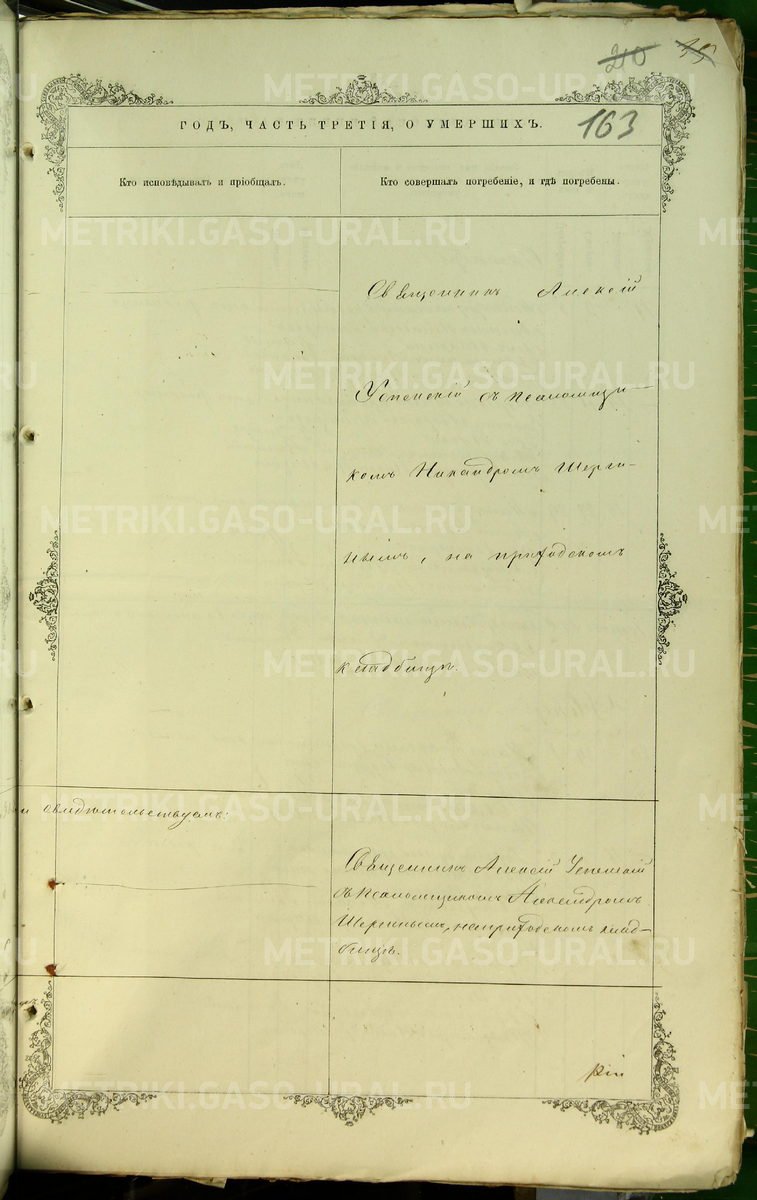 210 35
163
ГОДЪ, ЧАСТЬ ТРЕТІЯ, О УМЕРШИХЪ.
Кто исповѣдывалъ и пріобщалъ.
Кто совершалъ погребеніе, и гдѣ погребены.
Священникъ Алексій
Успенскій съ псаломщи-
комъ Никандромъ Шерги-
нымъ, на приходскомъ
кладбищѣ.
свидѣтельствуемъ:
Священникъ Алексій Успенскій
съ псаломщикомъ
Шергинымъ, на приходскомъ клад-
бищѣ.
METRIKI.GASO-URAL.RU